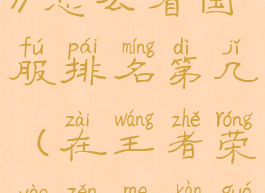 》怎么看国
fú pái míng dì jǐ
服排名第几
zài wáng zhě róng
（在王者荣